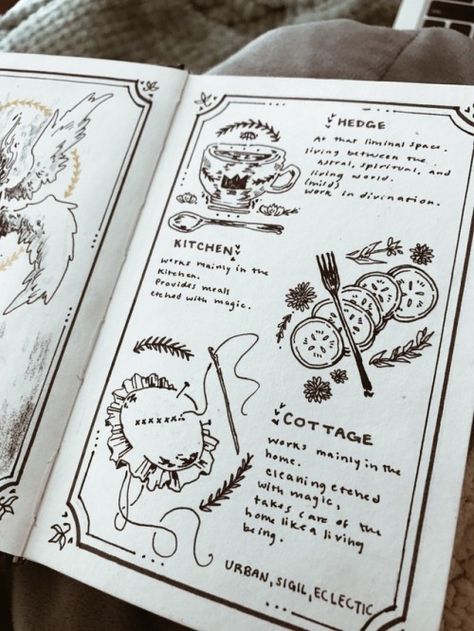 HEDGE
At that liminal space.
living between the
astral, spiritual, and
living world.
(mild)
work in divination.
KITCHEN
works mainly in the
kitchen.
Provides meals
etched with magic.
COTTAGE
works mainly in the
home.
cleaning etched
with magic,
takes care of the
home like a living
being.
URBAN, SIGIL, ECLECTIC